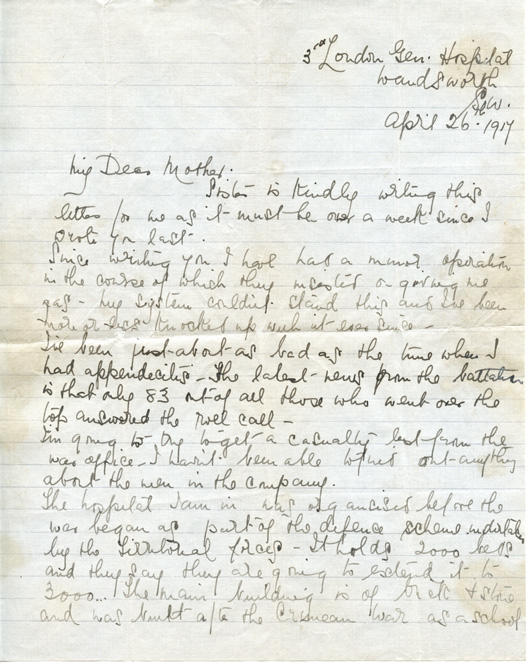 3rd London Gen. Hospital
Wandsworth
S.W.
April 26. 1917
My Dear Mother.
Sister is kindly writing this
letter for me as it must be over a week since I
wrote you last.
Since writing you I have had a minor operation
in the course of which they insisted on giving me
gas - my system couldn't stand this and I've been
more or less knocked up with it ever since -
I've been just about as bad as the time when I
had appendicitis - The latest news from the battalion
is that only 83 out of all those who went over the
top answered the roll call -
I'm going to try to get a casualty list from the
war office - I havn't been able to find out anything
about the men in the company.
The hospital I am in was organised before the
war began as part of the defence scheme undertaken
by the Territorial forces - It holds 2000 beds
and they say they are going to extend it to
3000... The main building is of brick & stone
and was built after the Crimean war as a school